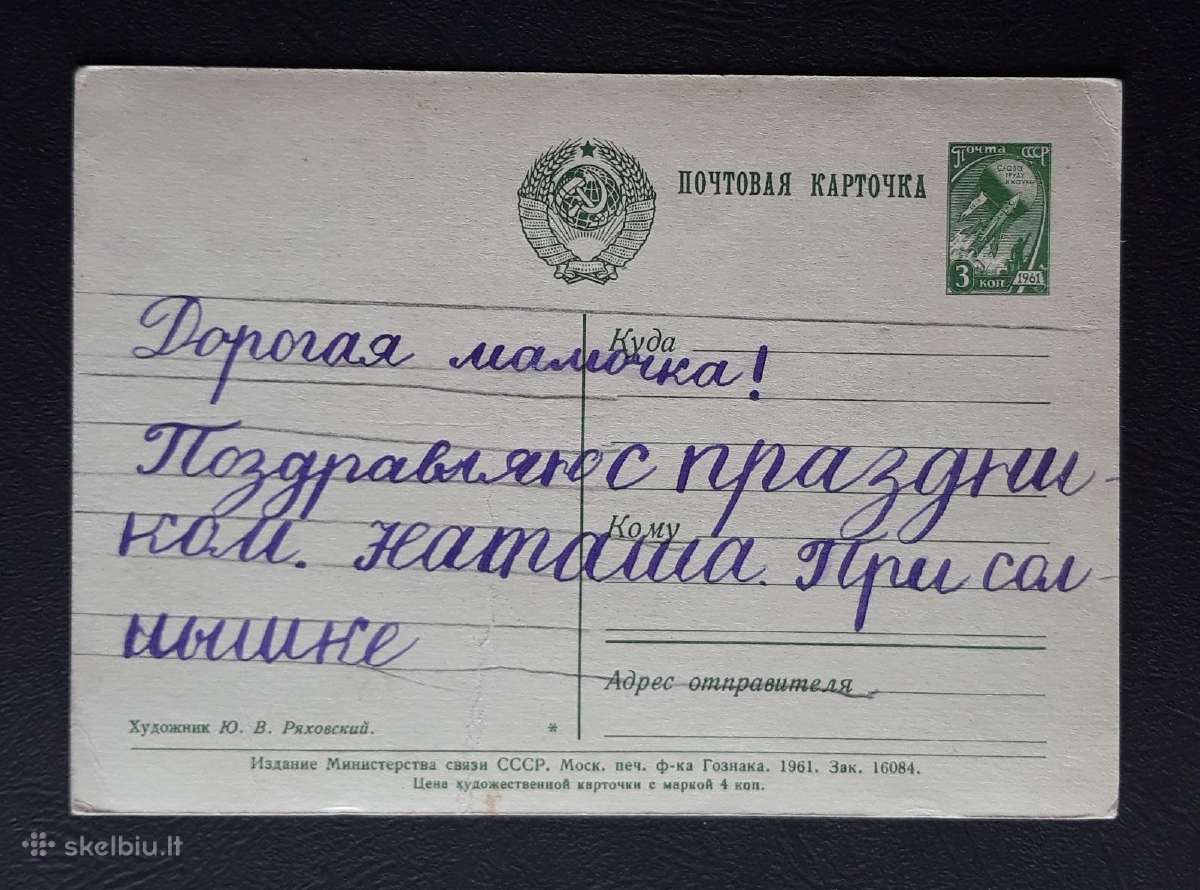 ПОЧТОВАЯ КАРТОЧКА
Почта СССР
СЛАВА
ТРУДУ
И НАУКЕ
3 коп 1961
Куда
Дорогая мамочка!
Поздравляю с праздни-
Кому
ком. Наташа. При сол-
нышке
Адрес отправителя
Художник Ю. В. Ряховский.
*
Издание Министерства связи СССР. Моск. печ. ф-ка Гознака. 1961. Зак. 16084.
Цена художественной карточки с маркой 4 коп.
skelbiu.lt